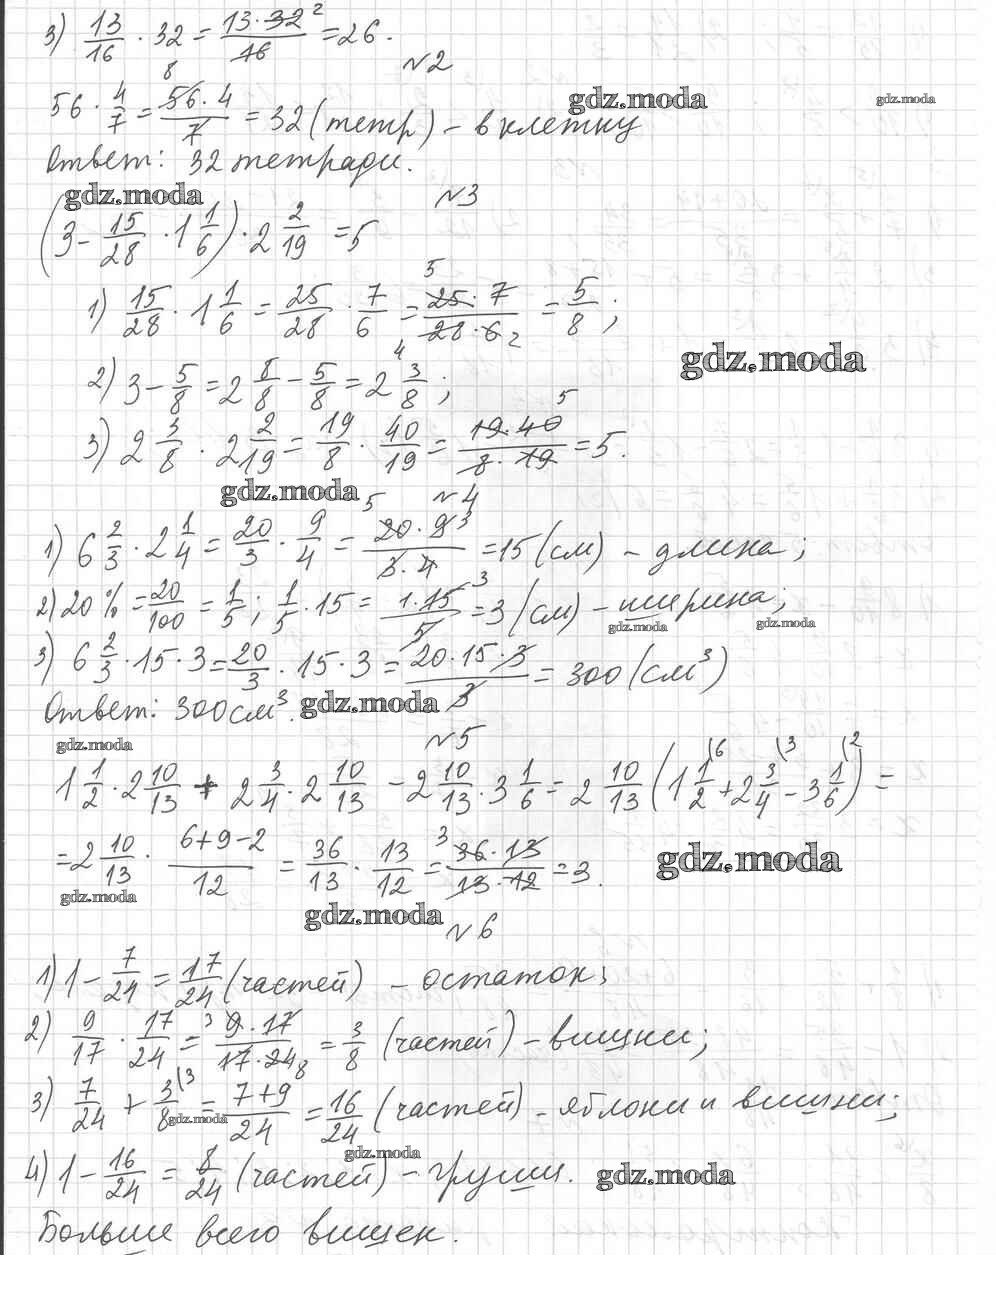 3) 13/16 · 32 = 13·32²/16 = 26.
№2
56 · 4/7 = ⁸56·4/7 = 32 (тетр) – в клетку
gdz.moda gdz.moda
Ответ: 32 тетради.
gdz.moda
№3
(3 - 15/28 · 1 1/6) · 2 2/19 = 5
1) 15/28 · 1 1/6 = 25/28 · 7/6 = ⁵25·7/₄28·6₂ = 5/8 ;
gdz.moda
2) 3 – 5/8 = 2 8/8 – 5/8 = 2 3/8 ;
3) 2 3/8 · 2 2/19 = 19/8 · 40/19 = 19·40⁵/8·19 = 5.
gdz.moda
№4
1) 6 2/3 · 2 1/4 = 20/3 · 9/4 = ⁵20·9³/3·4 = 15 (см) – длина;
2) 20% = 20/100 = 1/5 ; 1/5 · 15 = 1·15³/5 = 3 (см) – ширина;
gdz.moda gdz.moda
3) 6 2/3 · 15 · 3 = 20/3 · 15 · 3 = 20·15·3/3 = 300 (см³)
Ответ: 300 см³.
gdz.moda
№5
gdz.moda
1 1/2 · 2 10/13 + 2 3/4 · 2 10/13 – 2 10/13 · 3 1/6 = 2 10/13 (1 1/2⁽⁶ + 2 3/4⁽³ – 3 1/6⁽²) =
= 2 10/13 · 6+9–2/12 = 36/13 · 13/12 = ³36·13/13·12 = 3.
gdz.moda
gdz.moda
gdz.moda
№6
1) 1 – 7/24 = 17/24 (частей) – остаток;
2) 9/17 · 17/24 = ³9·17/17·24₈ = 3/8 (частей) – вишни;
3) 7/24 + 3/8⁽³ = 7+9/24 = 16/24 (частей) – яблони и вишни;
gdz.moda
gdz.moda
4) 1 – 16/24 = 8/24 (частей) – груши.
gdz.moda
Больше всего вишен.